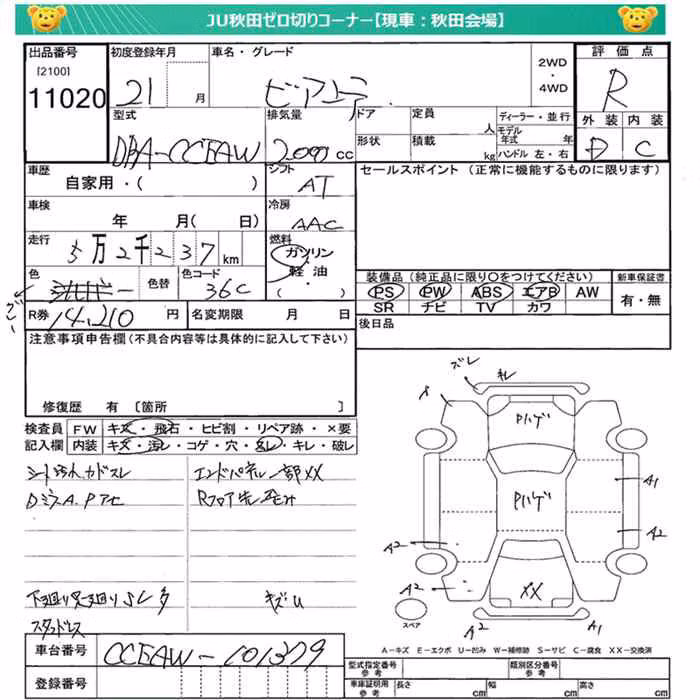 JU秋田ゼロ切りコーナー【現車：秋田会場】
出品番号 [2100] 11020
初度登録年月 21 月
車名・グレード ビアンテ
2WD・4WD
評価点 R
外装 D 内装 C
型式 DBA-CCEAW
排気量 2000 cc
ドア 形状
定員 人 積載 kg
ディーラー・並行
モデル年式 年
ハンドル 左・右
車歴 自家用・( )
シフト AT
セールスポイント (正常に機能するものに限ります)
車検 年 月( 日)
冷房 AAC
走行 5万2千237km
燃料 ガソリン・軽油・( )
色 グレー
色替
色コード 36C
装備品 (純正品に限り○をつけてください)
PS PW ABS エアB AW
SR ナビ TV カワ
新車保証書 有・無
R券 14,210 円
名変期限 月 日
後日品
注意事項申告欄 (不具合内容等は具体的に記入して下さい)
修復歴 有 [箇所 ]
検査員記入欄
FW キズ・飛石・ヒビ割・リペア跡・×要
内装 キズ・汚レ・コゲ・穴・スレ・キレ・破レ
エンドパネル一部XX
キズU
下廻り
スタッドレス
ズレ キレ
Pハゲ
Pハゲ
XX
A1
A2
A2
A2
A2
A1
スペア
A-キズ E-エクボ U-凹み W-補修跡 S-サビ C-腐食 XX-交換済
車台番号 CCEAW-101379
登録番号
型式指定番号 参考
類別区分番号 参考
車庫証明用 参考 長さ cm 幅 cm 高さ cm